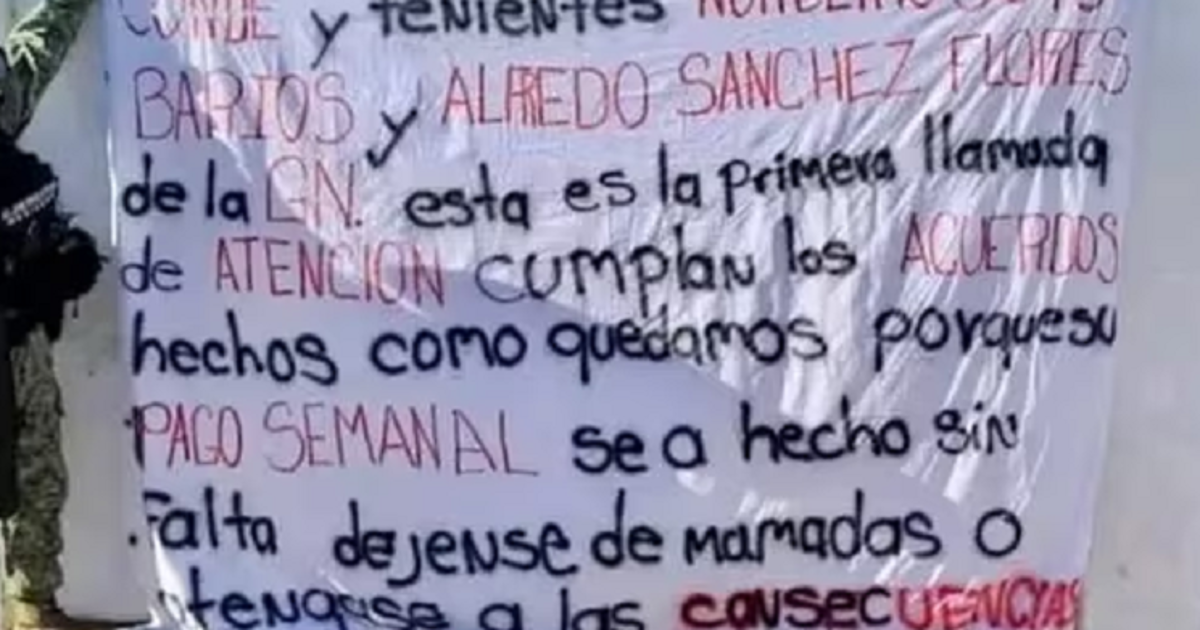 CONDE y tenientes
BARIOS y ALFREDO SANCHEZ FLORES
de la GN. esta es la primera llamada
de ATENCION cumplan los ACUERDOS
hechos como quedamos porquesu
PAGO SEMANAL se a hecho sin
falta dejense de mamadas o
atenganse a las consecUENCIAS